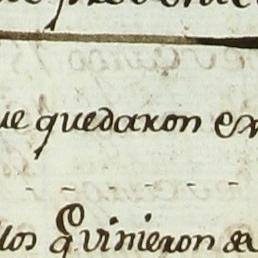 ue quedaron en
los q.e vinieron de